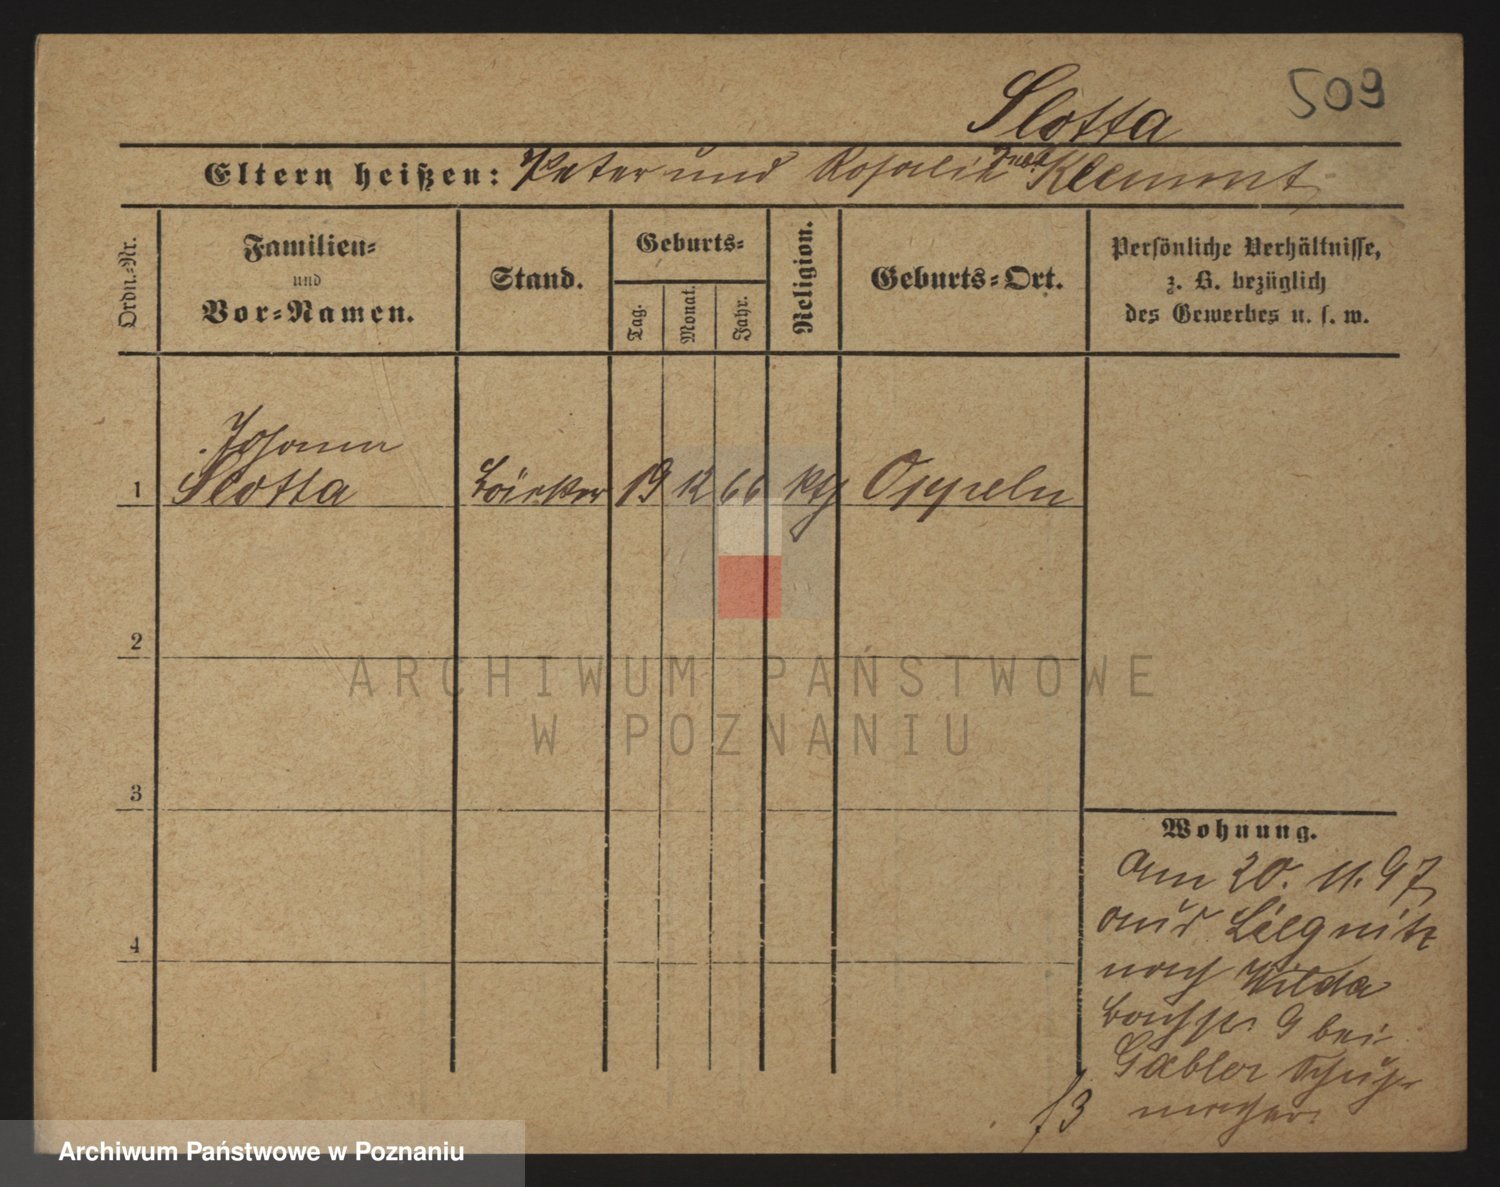 509
Slotta
Eltern heißen: Peter und Rosalie Klemmt
Ordn.-Nr.
Familien-
und
Vor-Namen.
Stand.
Geburts-
Tag.
Monat.
Jahr.
Religion.
Geburts-Ort.
Persönliche Verhältnisse,
z. B. bezüglich
des Gewerbes u. s. w.
Johann
1 Slotta 19 12 66 kth Oppeln
2
3
4
Wohnung.
am 20. 11. 97
aus Liegnitz
nach Wilda
9 bei
Gäbler Schuh-
macher.
f3
ARCHIWUM PAŃSTWOWE
W POZNANIU
Archiwum Państwowe w Poznaniu